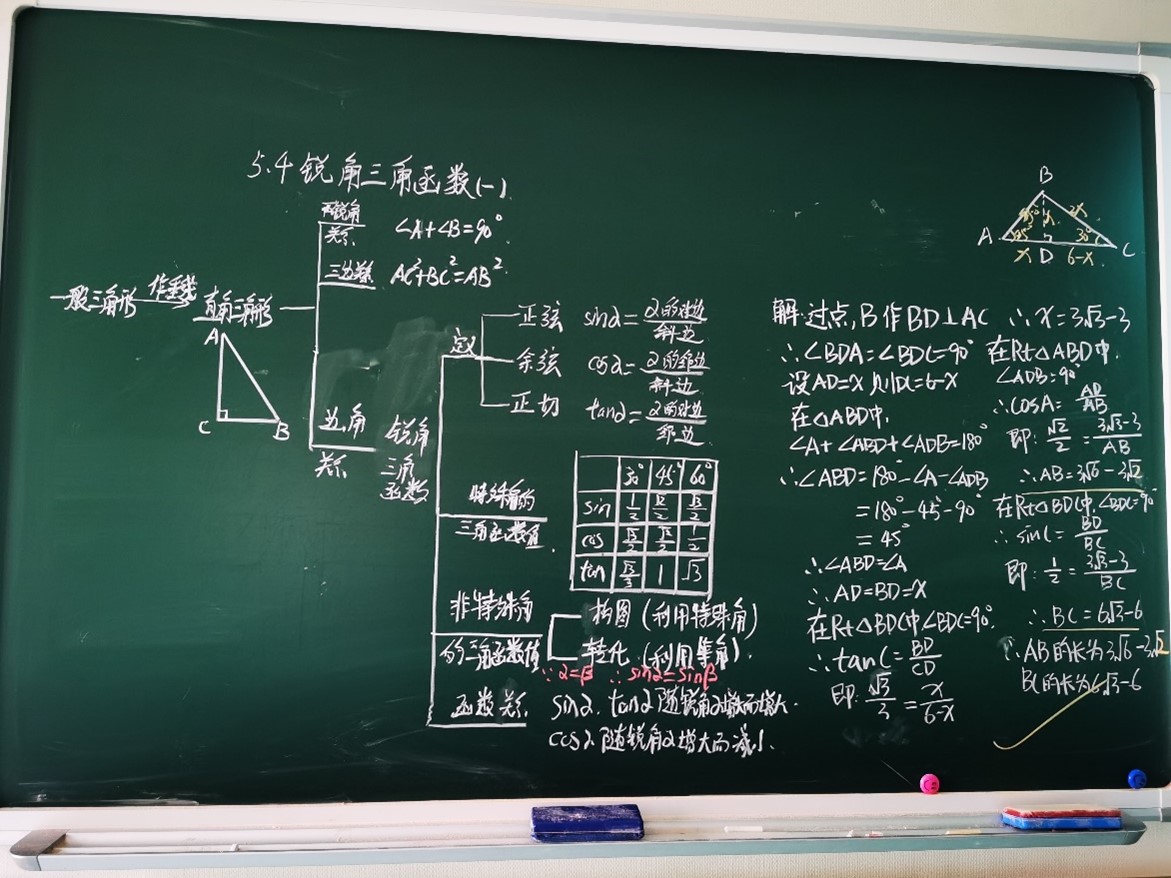 5.4 锐角三角函数(一)
两锐角
关系
∠A+∠B=90°
三边关系
AC²+BC²=AB²
一般三角形
作垂线
直角三角形
A
C
B
边角
关系
锐角
三角
函数
定义
正弦 sinα=α的对边/斜边
余弦 cosα=α的邻边/斜边
正切 tanα=α的对边/邻边
特殊角的
三角函数值
30° 45° 60°
sin 1/2 √2/2 √3/2
cos √3/2 √2/2 1/2
tan √3/3 1 √3
非特殊角
的三角函数值
构图(利用特殊角)
转化(利用等角).
∵α=β ∴sinα=sinβ
函数关系
sinα、tanα随锐角α增大而增大.
cosα随锐角α增大而减小.
B
45° x 2x
A 45° 30° C
x D 6-x
解:过点B作BD⊥AC
∴∠BDA=∠BDC=90°
设AD=x 则DC=6-x
在△ABD中,
∠A+∠ABD+∠ADB=180°
∴∠ABD=180°-∠A-∠ADB
=180°-45°-90°
=45°
∴∠ABD=∠A
∴AD=BD=x
在Rt△BDC中∠BDC=90°.
∴tanC=BD/CD
即:√3/3=x/6-x
∴x=3√3-3
在Rt△ABD中,
∠ADB=90°
∴cosA=AD/AB
即:√2/2=3√3-3/AB
∴AB=3√6-3√2
在Rt△BDC中,∠BDC=90°
∴sinC=BD/BC
即:1/2=3√3-3/BC
∴BC=6√3-6
∴AB的长为3√6-3√2
BC的长为6√3-6